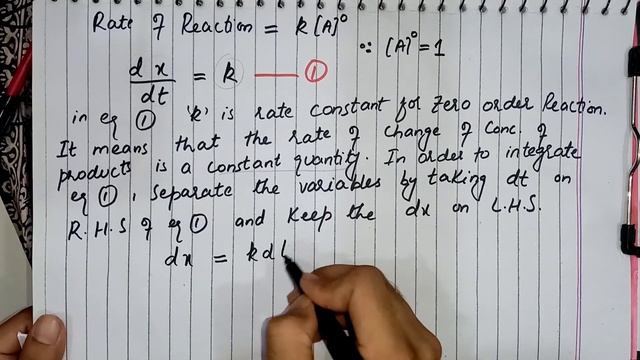 Rate of Reaction = k[A]⁰
∵ [A]⁰ = 1
dx/dt = k —— ①
in eq ① 'k' is rate constant for zero order Reaction.
It means that the rate of change of Conc. of
products is a constant quantity. In order to integrate
eq ①, separate the variables by taking dt on
R.H.S of eq ① and keep the dx on L.H.S.
dx = kd